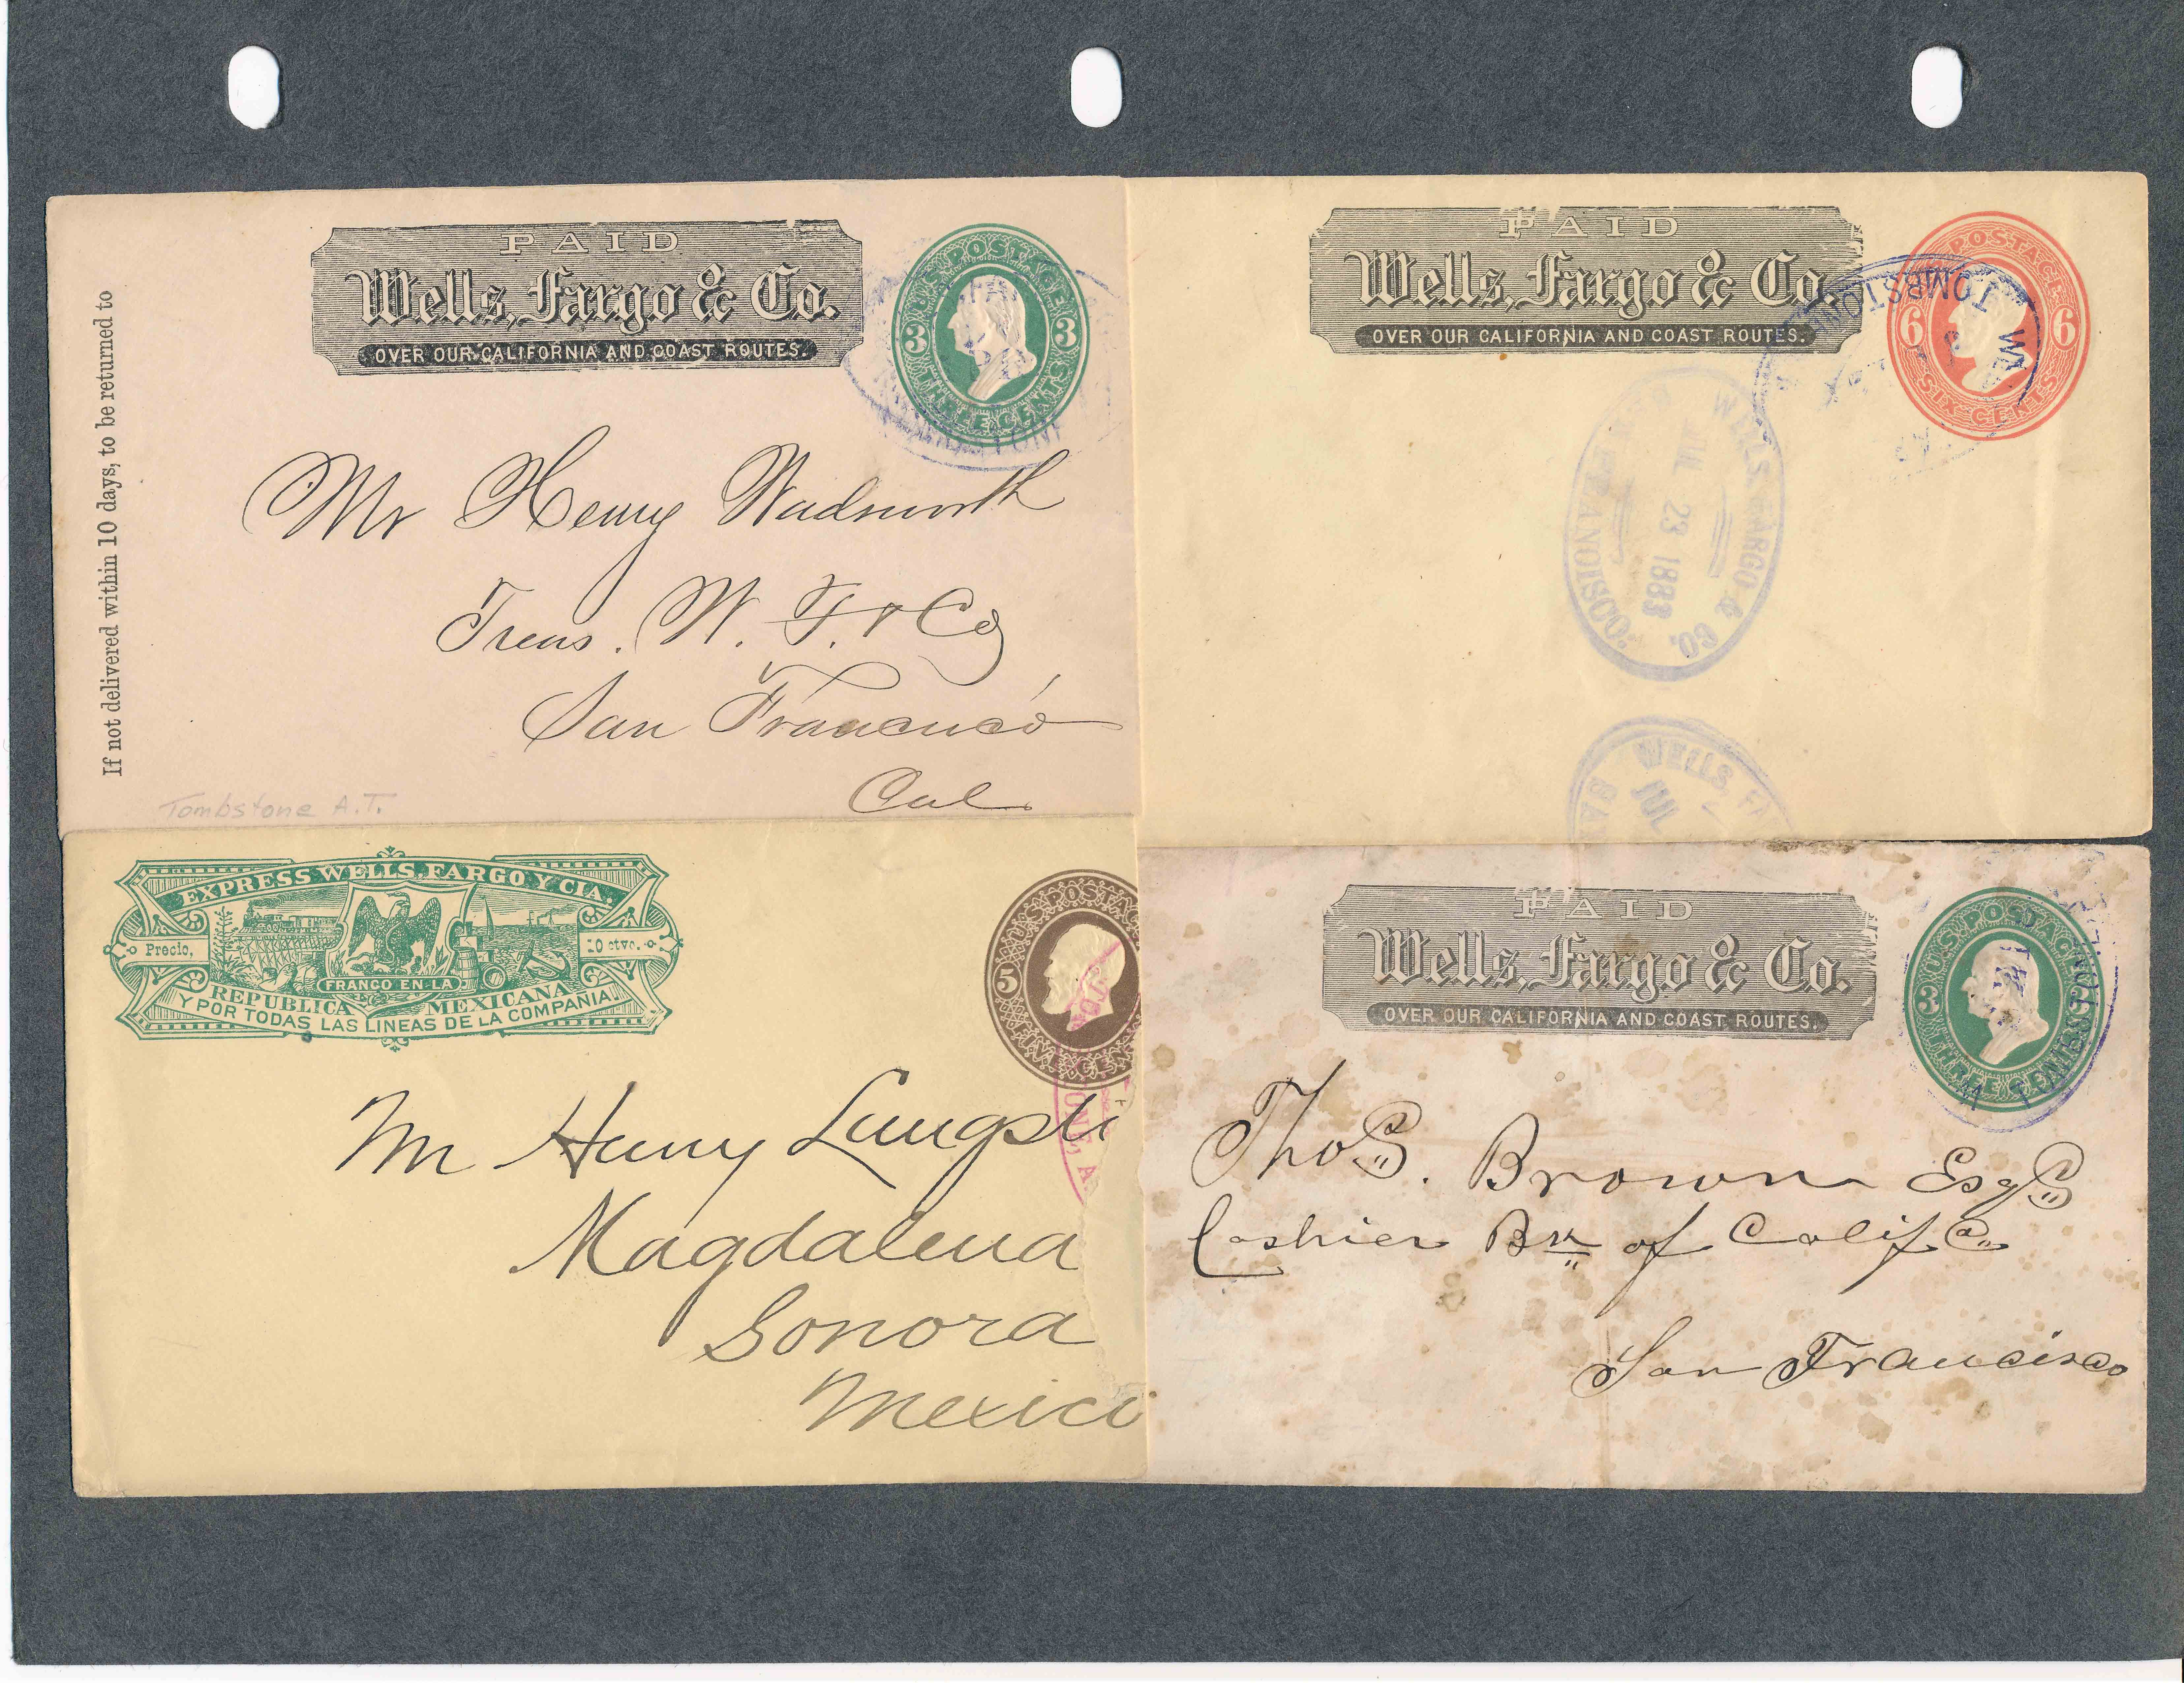 PAID
Wells, Fargo & Co.
OVER OUR CALIFORNIA AND COAST ROUTES.
U.S. POSTAGE
3 3
THREE CENTS
If not delivered within 10 days, to be returned to
Mr Henry Wadsworth
Treas. W. F. & Co
San Francisco
Cal
Tombstone A.T.
PAID
Wells, Fargo & Co.
OVER OUR CALIFORNIA AND COAST ROUTES.
POSTAGE
6 6
SIX CENTS
TOMBSTON
WELLS FARGO & CO.
JUL 23 1883
FRANCISCO.
WELLS FA
JUL
EXPRESS WELLS, FARGO Y CIA.
Precio,
10 ctvo.
FRANCO EN LA
REPUBLICA MEXICANA
Y POR TODAS LAS LINEAS DE LA COMPAÑIA.
U.S. POSTAG
5
FIVE CEN
Mr Harry Langst
Magdalena
Sonora
Mexico
PAID
Wells, Fargo & Co.
OVER OUR CALIFORNIA AND COAST ROUTES.
U.S. POSTAGE
3
THREE CENTS
Thos. Brown Esqs
Cashier Bk of Califa
San Francisco